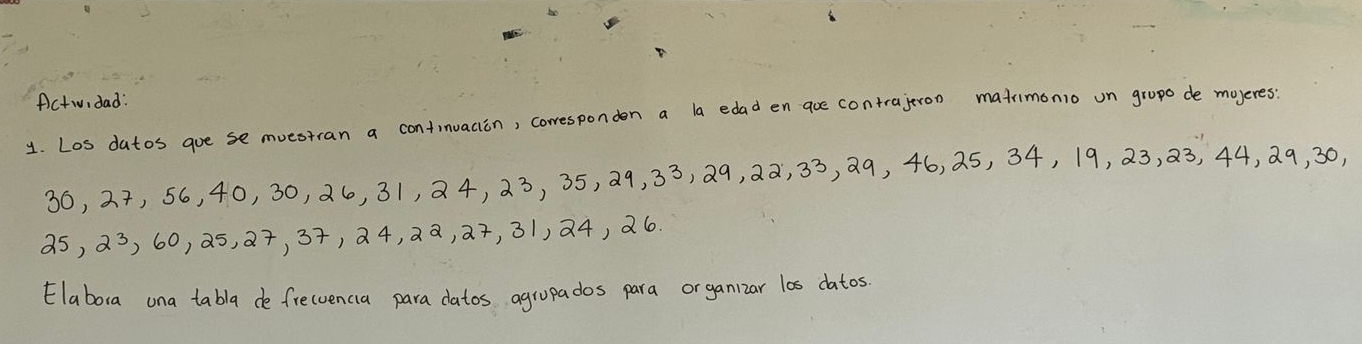 Actividad:
1. Los datos que se muestran a continuación, corresponden a la edad en que contrajeron matrimonio un grupo de mujeres:
30, 27, 56, 40, 30, 26, 31, 24, 23, 35, 29, 33, 29, 22, 33, 29, 46, 25, 34, 19, 23, 23, 44, 29, 30,
25, 23, 60, 25, 27, 37, 24, 22, 27, 31, 24, 26.
Elabora una tabla de frecuencia para datos agrupados para organizar los datos.